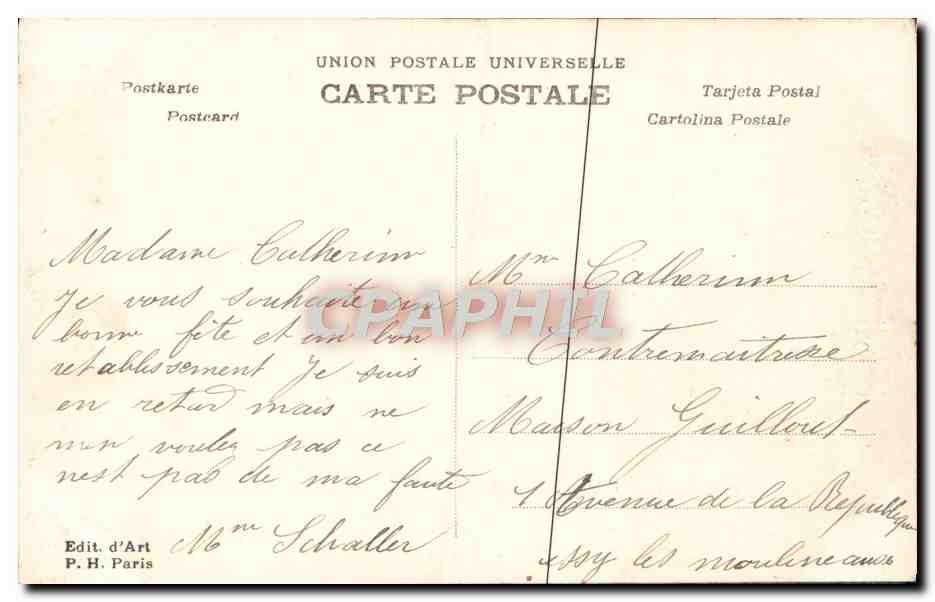 UNION POSTALE UNIVERSELLE
CARTE POSTALE
Postkarte
Postcard
Tarjeta Postal
Cartolina Postale
Madame Catherinn
Je vous souhaite un
bonne fête et un bon
retablissement Je suis
en retard mais ne
men voulez pas ce
nest pas de ma faute
Mme Schaller
Mme Catherinn
Contremaitresse
Maison Guillout
1 Avenue de la Republique
issy les moulineaux
Edit. d'Art
P. H. Paris
CPAPHIL